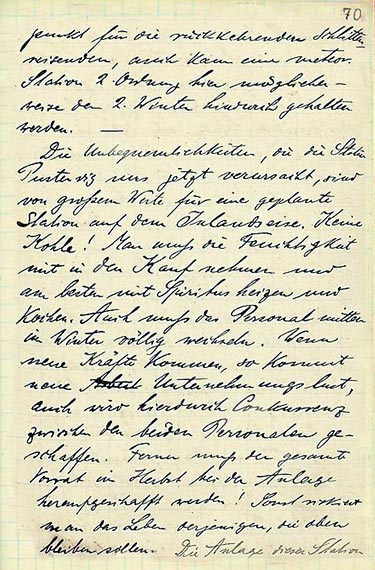 70
punkt für die rückkehrenden Schlitten-
reisenden, auch kann eine meteor.
Station 2. Ordnung hier möglicher-
weise den 2. Winter hindurch gehalten
werden. —
Die Unbequemlichkeiten, die die Station
Pustervig uns jetzt verursacht, sind
von großem Werte für eine geplante
Station auf dem Inlandseise. Keine
Kohle! Man muß die Feuchtigkeit
mit in den Kauf nehmen und
am besten mit Spiritus heizen und
kochen. Auch muß das Personal mitten
im Winter völlig wechseln. Wenn
neue Kräfte kommen, so kommt
neue Unternehmungslust,
auch wird hierdurch Conkurrenz
zwischen den beiden Personalen ge-
schaffen. Ferner muß der gesamte
Vorrat im Herbst bei der Anlage
heraufgeschafft werden! Sonst riskiert
man das Leben derjenigen, die oben
bleiben sollen. Die Anlage dieser Station